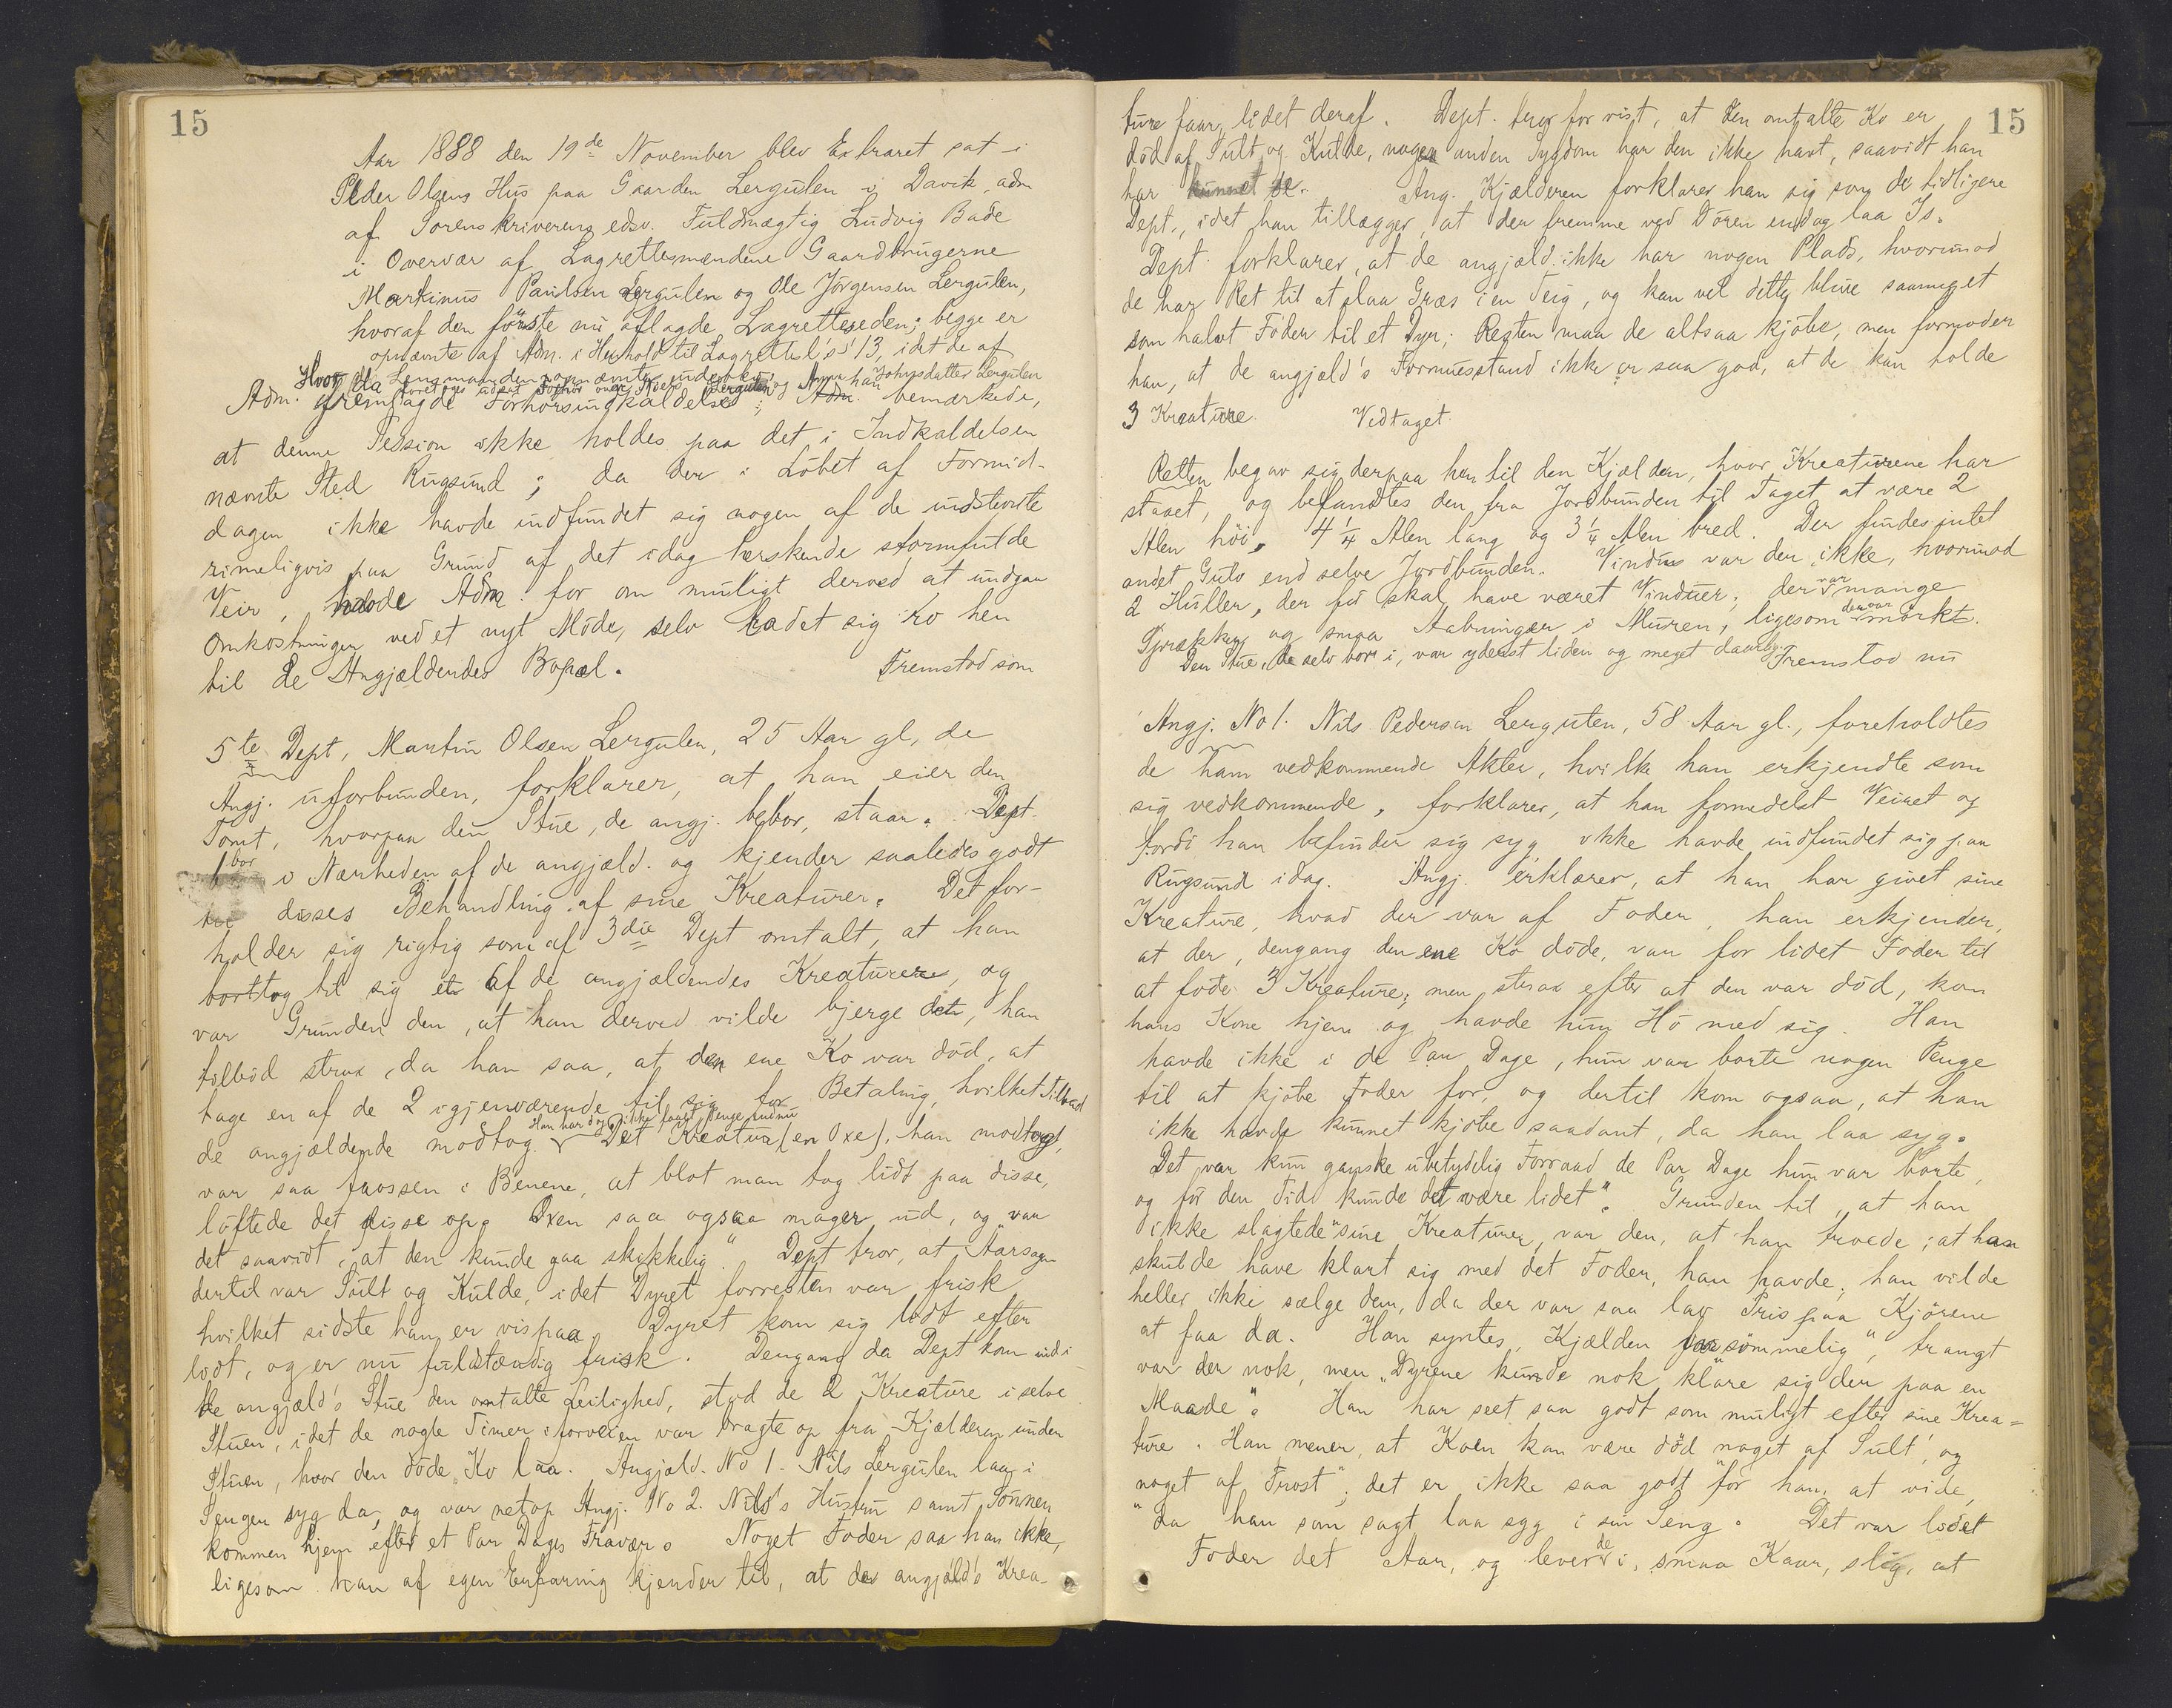 15
Aar 1888 den 19de November blev Extraret sat i
Peder Olsens Hus paa Gaarden Lergulen i Davik, adm
af Sorenskriverens edsv. Fuldmægtig Ludvig Bade
i Overvær af Lagrettesmændene Gaardbrugerne
Martinus Paulsen Lergulen og Ole Jørgensen Lergulen,
hvoraf den første nu aflagde Lagretteseden; begge er
opnævnte af Adm. i Henhold til Lagrettel's § 13, idet de af
Lensmanden opnævnte udeblev.
Hvor da foretoges udsat Forhør over Nils Lergulen og Anna Johnsdatter Lergulen
Adm. fremlagde Forhørsindkaldelse; Adm. han bemærkede,
at denne Session ikke holdes paa det i Indkaldelsen
nævnte Sted Rugsund; da der i Løbet af Formid-
dagen ikke havde indfundet sig nogen af de indstevnte
rimeligvis paa Grund af det idag herskende stormfulde
Veir, havde Adm. for om muligt derved at undgaa
Omkostninger ved et nyt Møde, selv ladet sig ro hen
til de Angjældendes Bopæl. Fremstod som
5te Dept, Martin Olsen Lergulen, 25 Aar gl, de
Angj. uforbunden, forklarer, at han eier den
Tomt, hvorpaa den Stue, de angj. bebor, staar. Dept.
bor i Nærheden af de angjæld. og kjender saaledes godt
til disses Behandling af sine Kreaturer. Det for-
holder sig rigtig som af 3die Dept omtalt, at han
borttog til sig et af de angjældendes Kreaturer, og
var Grunden den, at han derved vilde bjerge det, han
tilbød strax, da han saa, at den ene Ko var død, at
tage en af de 2 igjenværende til sig for Betaling, hvilket Tilbud
de angjældende modtog. Han har dog ikke faaet Penge endnu Det Kreatur (en Oxe), han modtog,
var saa frossen i Benene, at blot man tog lidt paa disse,
løftede det disse op. Oxen saa ogsaa mager ud, og "var
det saavidt, at den kunde gaa skikkelig". Dept tror, at Aarsagen
dertil var Sult og Kulde, idet Dyret forresten var frisk
hvilket sidste han er vis paa. Dyret kom sig lidt efter
lidt, og er nu fuldstændig frisk. Dengang da Dept kom ind i
de angjæld's Stue den omtalte Leilighed, stod de 2 Kreature i selve
Stuen, idet de nogle Timer i forveien var bragte op fra Kjælderen under
Stuen, hvor den døde Ko laa. Angjæld. No 1. Nils Lergulen laa i
Sengen syg da, og var netop Angj. No 2. Nils's Hustru samt Sønnen
kommen hjem efter et Par Dages Fravær. Noget Foder saa han ikke,
ligesom han af egen Erfaring kjender til, at de angjæld's Krea-
15
ture faar lidet deraf. Dept. tror for vist, at den omtalte Ko er
død af Sult og Kulde, nogen anden Sygdom har den ikke havt, saavidt han
har kunnet se. Ang. Kjælderen forklarer han sig som de tidligere
Dept., idet han tillægger, at der fremme ved Døren endog laa Is.
Dept. forklarer, at de angjæld. ikke har nogen Plads, hvorimod
de har Ret til at slaa Græs i en Teig, og kan vel dette blive saameget
som halvt Foder til et Dyr; Resten maa de altsaa kjøbe, men formoder
han, at de angjæld's Formuesstand ikke er saa god, at de kan holde
3 Kreature. Vedtaget.
Retten begav sig derpaa hen til den Kjælder, hvor Kreaturene har
staaet, og befandtes den fra Jordbunden til Taget at være 2
Alen høi, 4 1/4 Alen lang og 3 1/4 Alen bred. Der findes intet
andet Gulv end selve Jordbunden. Vindue var der ikke, hvorimod
2 Huller, der før skal have været Vinduer; der var mange
Sprækker og smaa Aabninger i Muren, ligesom der var mørkt.
Den Stue, de selv bor i, var yderst liden og meget daarlig. Fremstod nu
Angj. No 1. Nils Pedersen Lergulen, 58 Aar gl., foreholdtes
de ham vedkommende Akter, hvilke han erkjendte som
sig vedkommende, forklarer, at han formedelst Veiret og
fordi han befinder sig syg ikke havde indfundet sig paa
Rugsund idag. Angj. erklærer, at han har givet sine
Kreature, hvad der var af Foder, han erkjender,
at der, dengang den ene Ko døde, var for lidet Foder til
at føde 3 Kreature; men strax efter at den var død, kom
hans Kone hjem og havde hun Hø med sig. Han
havde ikke i de Par Dage, hun var borte nogen Penge
til at kjøbe Foder for, og dertil kom ogsaa, at han
ikke havde kunnet kjøbe saadant, da han laa syg.
Det var kun ganske ubetydelig Forraad de Par Dage hun var borte,
og før den Tid "kunde det være lidet". Grunden til, at han
ikke slagtede sine Kreaturer, var den, at han troede, at han
skulde have klart sig med det Foder, han havde; han vilde
heller ikke sælge dem, da der var saa lav Pris paa Kjørene
at faa da. Han syntes, Kjælden "var sømmelig", trangt
var der nok, men "Dyrene kunde nok klare sig der paa en
Maade". Han har seet saa godt som muligt efter sine Krea=
ture. Han mener, at Koen kan være død "noget af Sult, og
noget af Frost"; det er ikke saa godt for han, at vide,
"da han som sagt laa syg i sin Seng. Det var lidet
Foder det Aar, og lever de i smaa Kaar, slig, at